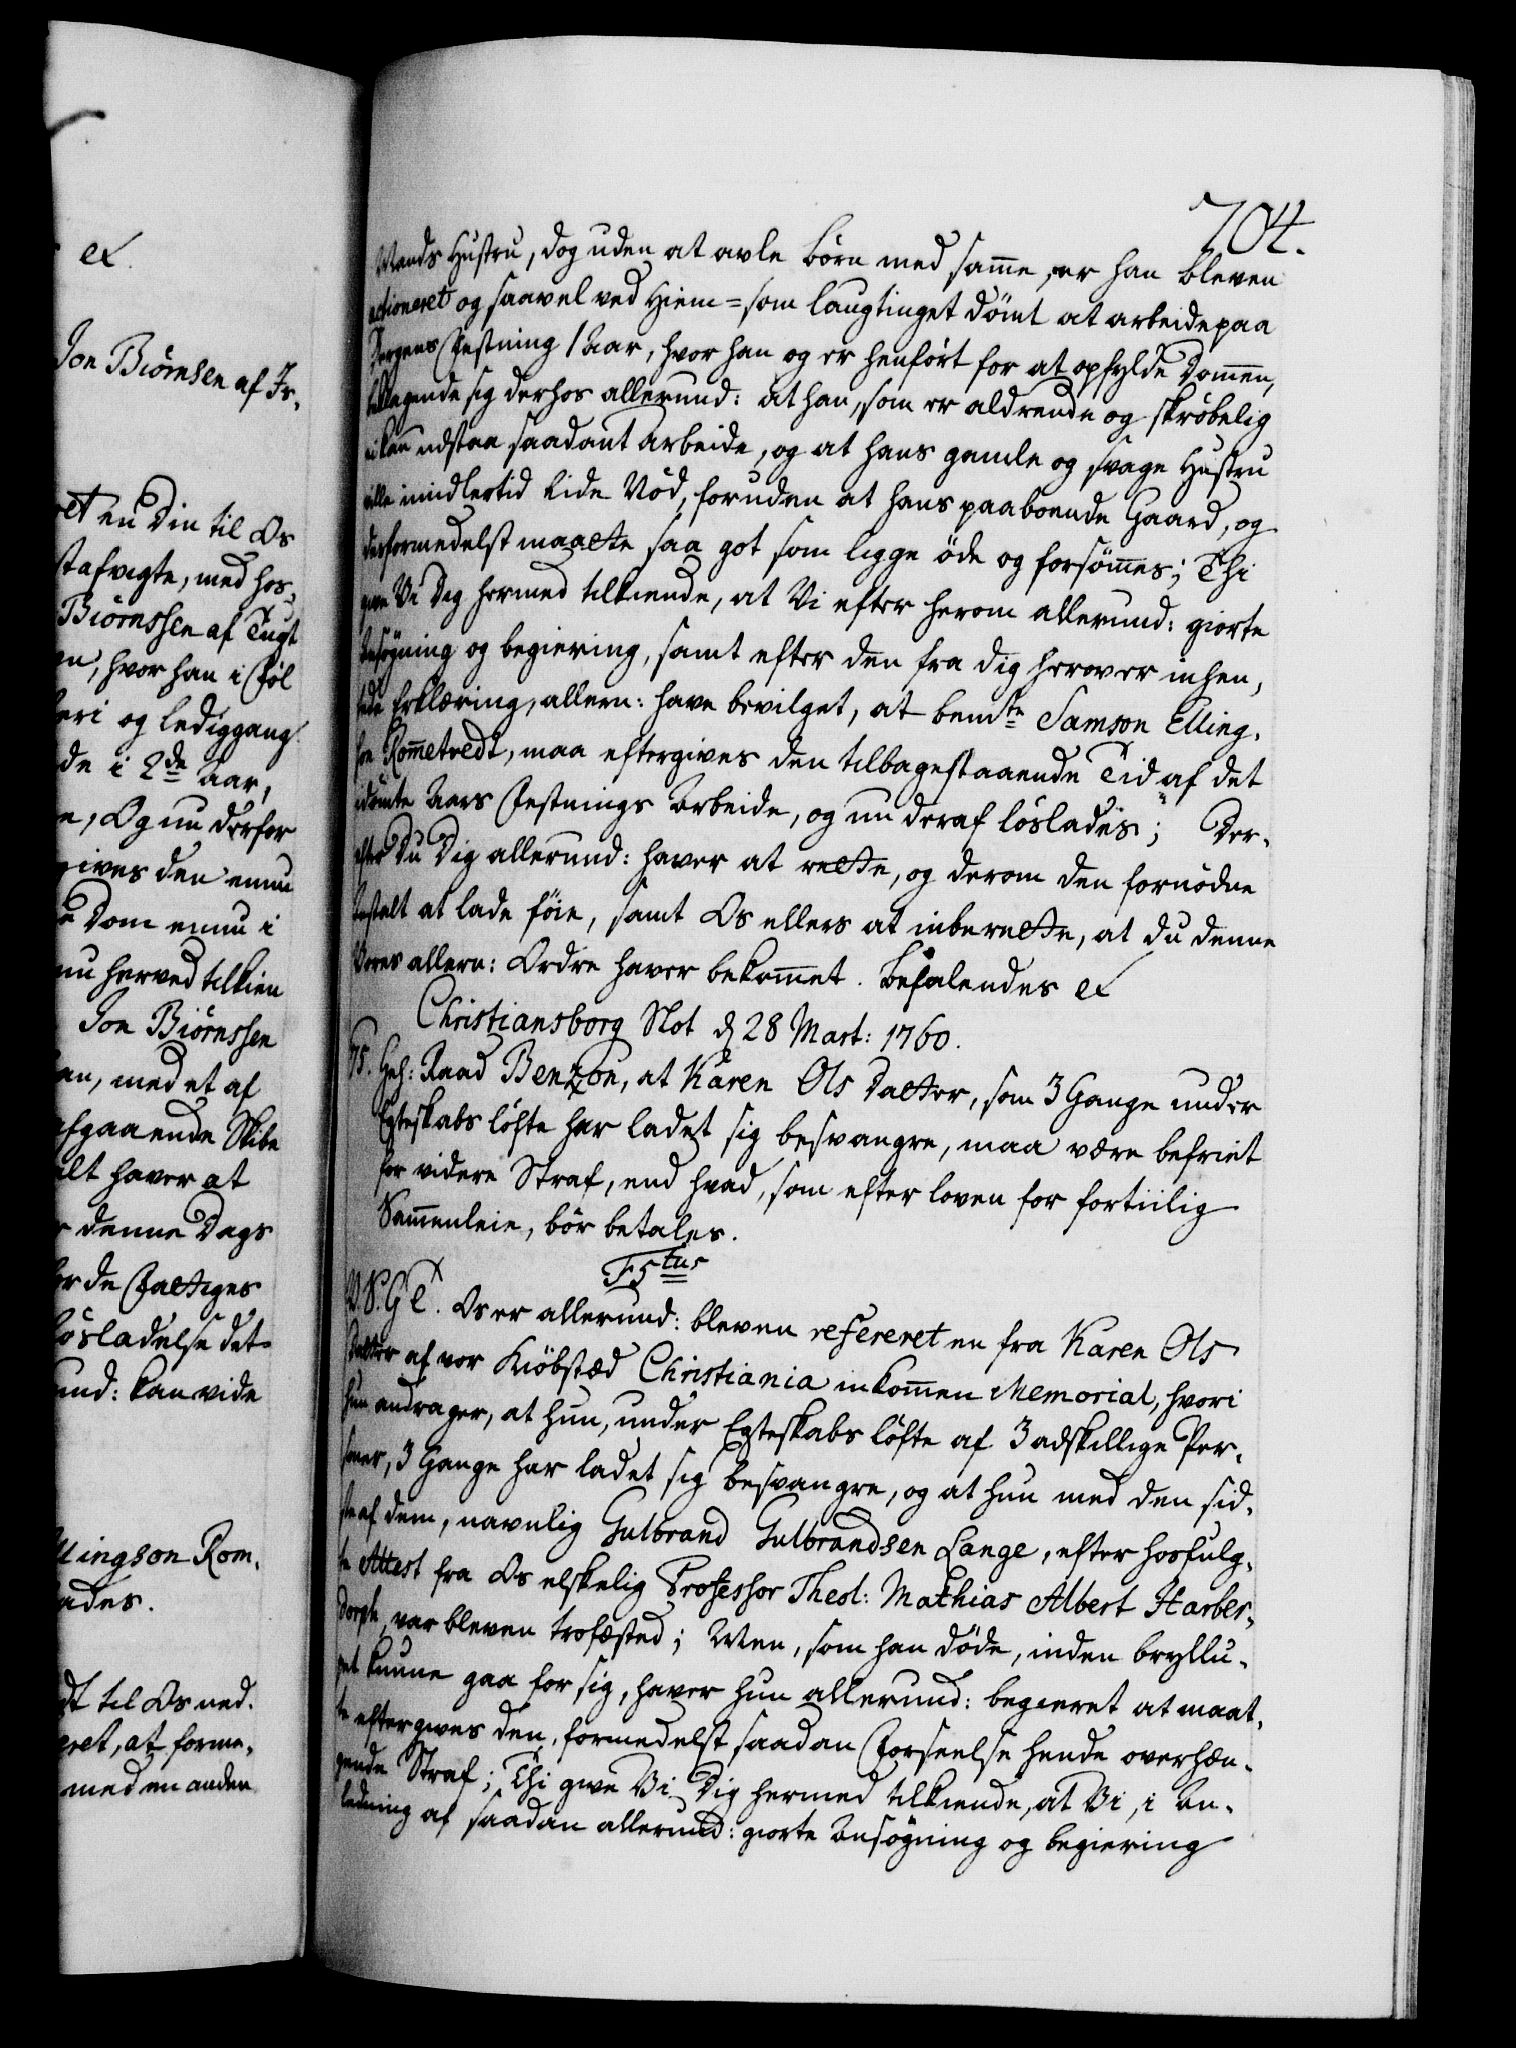 ex
Jon Biørnsen af Is,
et en Din til Os
stafvigte, med hos,
Biørnssen af Tugt
en, hvor han i Føl
eri og lediggang
de i 2de Aar,
e, Og nu derfor
gives den ennu
e Dom ennu i
nu herved tilkien
Jon Biørnssen
an, med et af
afgaaende Skibe
alt haver at
r denne Dags
or de Fattiges
løsladelse det
und: kan vide
llingson Rom,
ades.
dt til Os ned.
eret, at forme,
med en anden
704.
Mands Hustru, dog uden at avle børn med samme, er han bleven
actioneret og saavel ved Hiem= som laugtinget dømt at arbeide paa
Bergens Fæstning 1 Aar, hvor han og er henført for at opfylde Dommen,
beklagende sig derhos allerund: at han, som er aldrende og skrøbelig
ei kan udstaa saadant Arbeide, og at hans gamle og svage Hustru
ville imidlertid lide Nød, foruden at hans paaboende Gaard, og
desformedelst maatte saa got som ligge øde og forsømmes; Thi
give Vi Dig hermed tilkiende, at Vi efter herom allerund: giorte
Ansøgning og begiering, samt efter den fra dig herover inhen,
tede Erklæring, allern: have bevilget, at bemte Samson Elling,
søn Rommetvedt, maa eftergives den tilbagestaaende Tid af det
idømte Aars Festnings Arbeide, og nu deraf løslades; Der,
efter Du Dig allerund: haver at rette, og derom den fornødne
Anstalt at lade føie, samt Os ellers at inberette, at du denne
Vores allern: Ordre haver bekommet. Befalendes ex
Christiansborg Slot d 28 Mart: 1760.
75. Geh: Raad Benzon, at Karen Ols Datter, som 3 Gange under
Egteskabs løfte har ladet sig besvangre, maa være befriet
for videre Straf, end hvad, som efter loven for fortiilig
Sammenleie, bør betales.
F5tus
V. S. G. T. Os er allerund: bleven refereret en fra Karen Ols
Datter af vor Kiøbstæd Christiania inkommen Memorial, hvori
hun andrager, at hun, under Egteskabs løfte af 3 adskillige Per,
soner, 3 Gange har ladet sig besvangre, og at hun med den sid,
ste af dem, navnlig Gulbrand Gulbrandsen Lange, efter hosfulg,
te Attest fra Os elskelig Professor Theol: Mathias Albert Harbes,
dorph, var bleven trofæsted; Men, som han døde, inden brylluh,
pet kunne gaa for sig, haver hun allerund: begieret at maat,
te eftergives den, formedelst saadan Forseelse hende overhæn,
gende Straf; Thi give Vi Dig hermed tilkiende, at Vi, i An,
ledning af saadan allerund: giorte Ansøgning og begiering